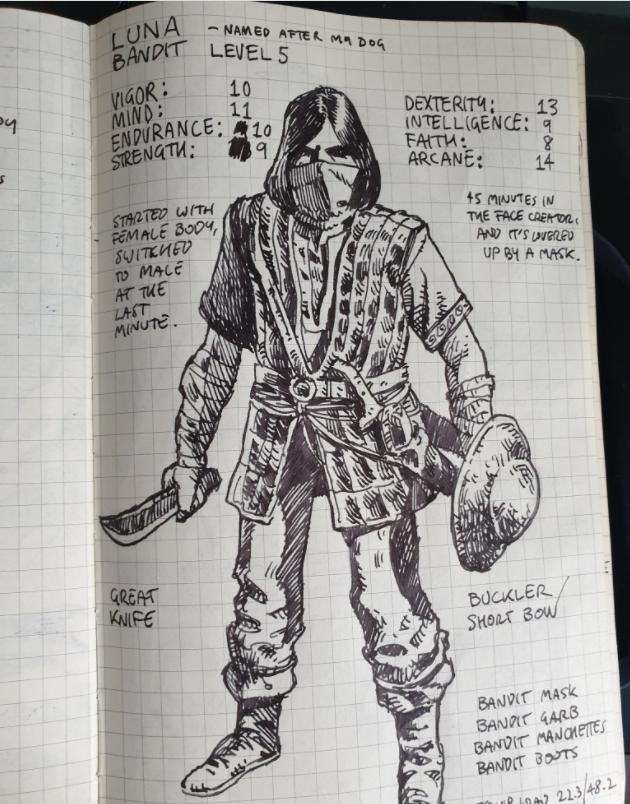 LUNA - NAMED AFTER MY DOG
BANDIT LEVEL 5
VIGOR: 10
MIND: 11
ENDURANCE: 10
STRENGTH: 9
DEXTERITY: 13
INTELLIGENCE: 9
FAITH: 8
ARCANE: 14
STARTED WITH
FEMALE BODY,
SWITCHED
TO MALE
AT THE
LAST
MINUTE.
45 MINUTES IN
THE FACE CREATOR,
AND IT'S COVERED
UP BY A MASK.
GREAT
KNIFE
BUCKLER/
SHORT BOW
BANDIT MASK
BANDIT GARB
BANDIT MANCHETTES
BANDIT BOOTS
LOAD 22.3/48.2